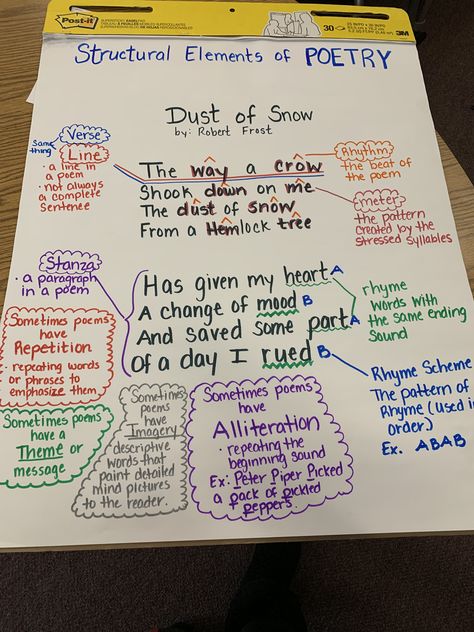 Post-it
SUPERSTICKY
30
3M
Structural Elements of POETRY
Dust of Snow
by: Robert Frost
Same thing
Verse
Line
• a line in a poem
• not always a complete sentence
The way a crow
Shook down on me
The dust of snow
From a Hemlock tree
Rhythm
the beat of the poem
meter
the pattern created by the stressed syllables
Stanza
• a paragraph in a poem
Has given my heart A
A change of mood B
And saved some part A
Of a day I rued B
rhyme
words with the same ending sound
Rhyme Scheme
The pattern of Rhyme (used in order)
Ex. ABAB
Sometimes poems have
Repetition
• repeating words or phrases to emphasize them
Sometimes poems have a Theme or message
Sometimes poems have Imagery
descriptive words that paint detailed mind pictures to the reader.
Sometimes poems have
Alliteration
• repeating the beginning sound
Ex: Peter Piper Picked a pack of pickled peppers.